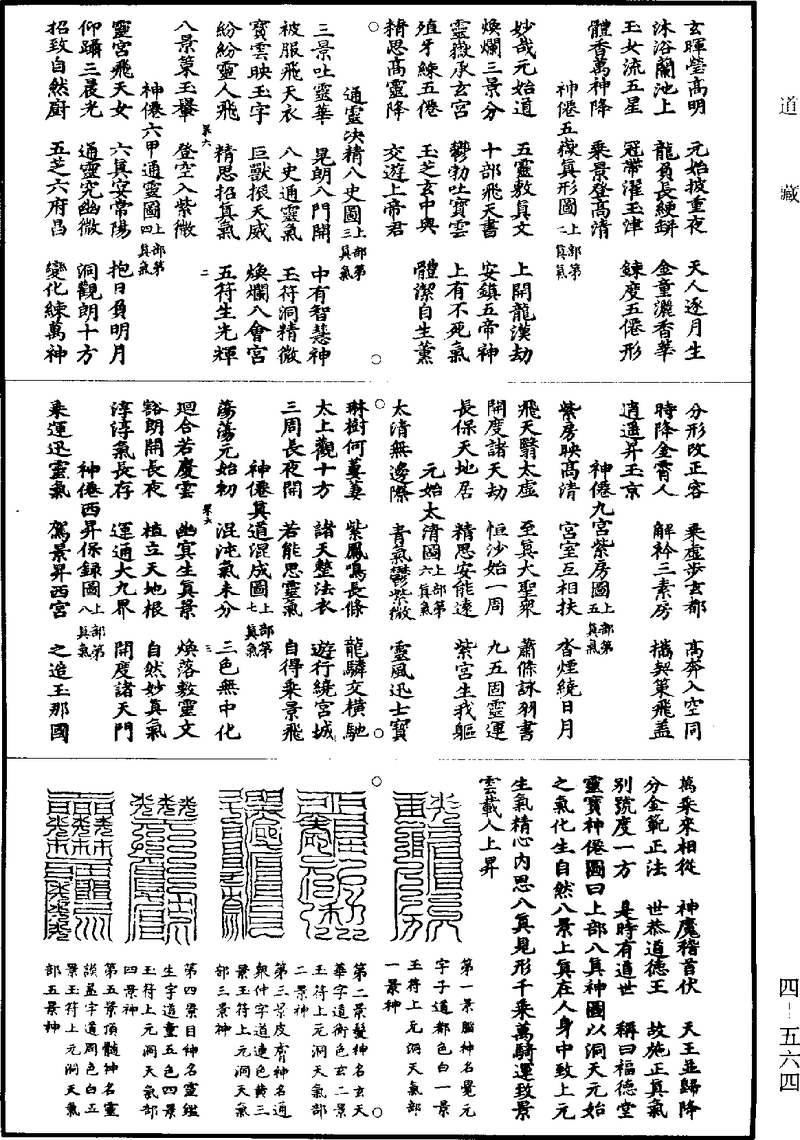 玄暉瑩高明　元始披重夜　天人逐月生
沐浴蘭池上　龍負長綆缾　金童灑香華
玉女流五星　冠帶濯玉津　鍊度五僊形
體香萬神降　乘景登高清
神僊五嶽真形圖上部第二真氣
妙哉元始道　五靈敷真文　上開龍漢劫
煥爛三景分　十部飛天書　安鎮五帝神
靈嶽承玄宮　鬱勃吐寶雲　上有不死氣
殖牙練五僊　玉芝玄中興　體潔自生薰
精思高靈降　交遊上帝君
通靈決精八史圖上部第三真氣
三景吐靈華　晃朗八門開　中有智慧神
被服飛天衣　八史通靈氣　玉符洞精微
寶雲映玉宇　巨獸振天威　煥爛八會宮
紛紛靈人飛　精思招真氣　五符生光輝
八景策玉轝　登空入紫微
第六　二
神僊六甲通靈圖上部第四真氣
靈宮飛天女　六真安常陽　抱日負明月
仰躡三晨光　通靈究幽微　洞觀朗十方
招致自然廚　五芝六府昌　變化練萬神
分形改正容　乘虛步玄都　高奔入空同
時降金霄人　解衿三素房　攜契策飛蓋
逍遥昇玉京
神僊九宮紫房圖上部第五真氣
紫房映高清　宮室互相扶　沓煙繞日月
飛天翳太虛　至真大聖衆　蕭條詠羽書
開度諸天劫　恒沙始一周　九五固靈運
長保天地居　精思安能遠　紫宮生我軀
元始太清圖上部第六真氣
太清無邊際　青氣鬱紫微　靈風迅士寶
琳樹何萋萋　紫鳳鳴長條　龍驎交横馳
太上觀十方　諸天整法衣　遊行繞宮城
三周長夜開　若能思靈氣　自得乘景飛
神僊真道混成圖上部第七真氣
蕩蕩元始初　混沌氣未分　三色無中化
第六　三
迴合若慶雲　幽冥生真景　煥落敷靈文
豁朗開長夜　植立天地根　自然妙真氣
淳淳氣長存　運通大九界　開度諸天門
神僊西昇保録圖上部第八真氣
乘運迅靈氣　駕景昇西宮　之造玉那國
萬乘來相從　神魔稽首伏　天王並歸降
分金範正法　世恭道德王　故施正真氣
别號度一方　是時有道世　稱曰福德堂
靈寶神僊圖曰上部八真神圖以洞天元始
之氣化生自然八景上真在人身中致上元
生氣精心内思八真見形千乘萬騎運致景
雲載人上昇
第一景腦神名覺元
字子道都色白一景
玉符上元洞天氣部
一景神
第二景髮神名玄天
華字道衡色玄二景
玉符上元洞天氣部
二景神
第三景皮膚神名通
衆仲字道連色黄三
景玉符上元洞天氣
部三景神
第四景目神名靈鑑
生字道童五色四景
玉符上元洞天氣部
四景神
第五景項髓神名靈
謨蓋字道周色白五
景玉符上元洞天氣
部五景神
道藏
四—五六四